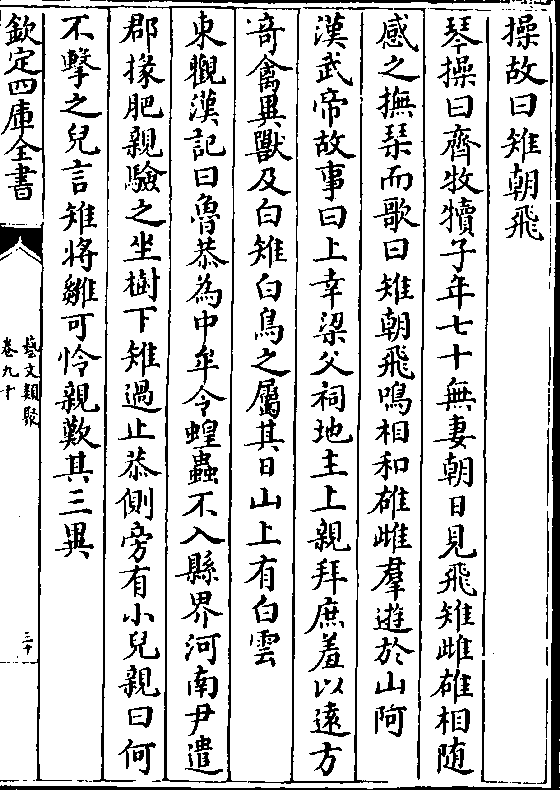 操故曰雉朝飛
琴操曰齊牧犢子年七十無妻朝日見飛雉雌雄相隨
感之撫琹而歌曰雉朝飛鳴相和雄雌羣遊於山阿
漢武帝故事曰上幸梁父祠地主上親拜庶羞以遠方
竒禽異獸及白雉白鳥之屬其日山上有白雲
東觀漢記曰魯恭為中牟令蝗蟲不入縣界河南尹遣
郡掾肥親驗之坐樹下雉過止恭側旁有小兒親曰何
不擊之兒言雉將雛可怜親歎其三異
欽定四庫全書
藝文類聚
卷九十
三十